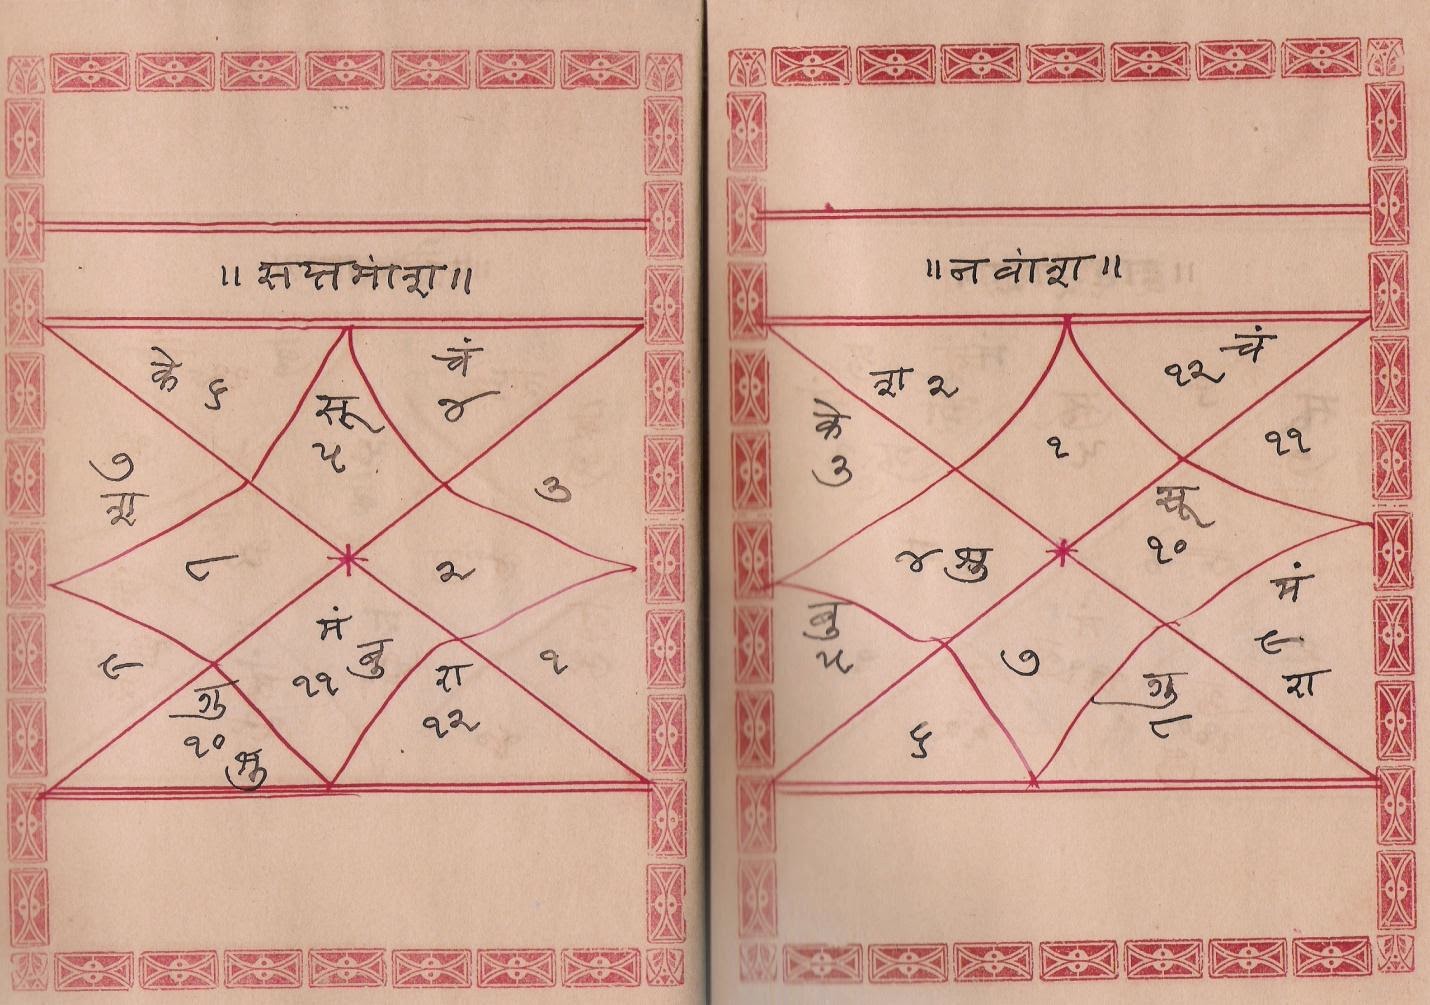 ॥ सप्तमांश॥
के ६
चं
४
सू
५
७
श
३
८
२
मं
११ बु
९
१
गु
१०
शु
रा
१२
॥नवांश॥
श २
१२ चं
के
३
१
११
सू
१०
४ शु
मं
९
रा
बु
५
७
गु
८
६